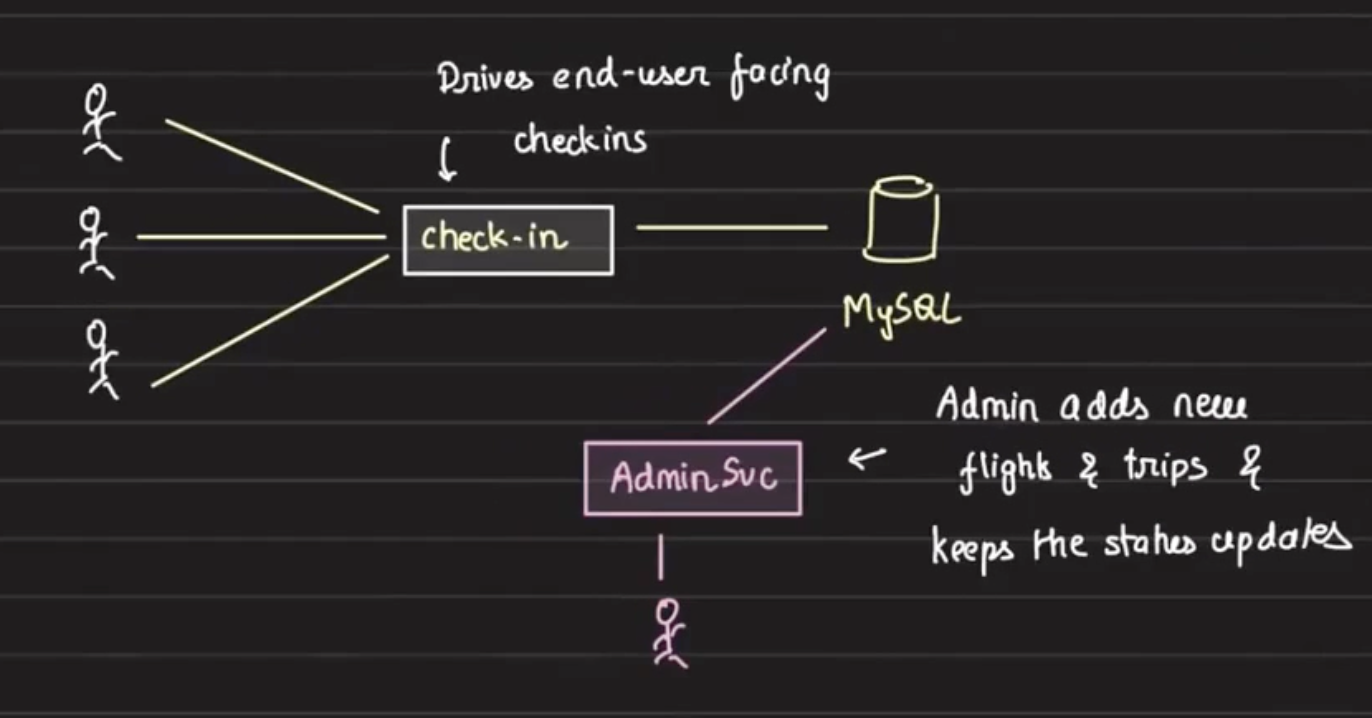 Drives end-user facing
checkins
check-in
MySQL
Admin Svc
Admin adds new
flights & trips &
keeps the status updates